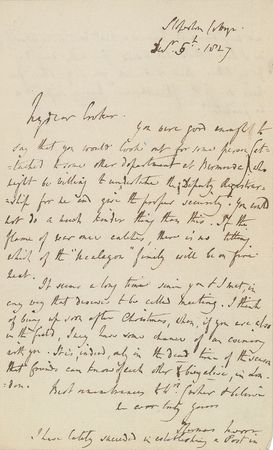 Sloperton Cottage
Decr. 5th. 1827
My dear Croker.
You were good enough to
say that you would look out for some person, at-
tached to some other department at Bermuda, who
might be willing to undertake the Deputy Registrar-
ship for me and give the proper security. You could
not do a much kinder thing than this. If the
flame of war once catches, there is no telling
which of the "Ucalegon" family will be on fire
next.
It seems a long time since you & I met, in
any way that deserves to be called meeting. I think
of being up soon after Christmas, when, if you are also
in the field, I may have some chance of an evening
with you. It is, indeed, only in the dead time of the season
that friends can know each other to be alive, in Lon-
don.
Best remembrances to Mrs Croker & believe
me ever truly yours
Thomas Moore
I have lately succeeded in establishing a Post in